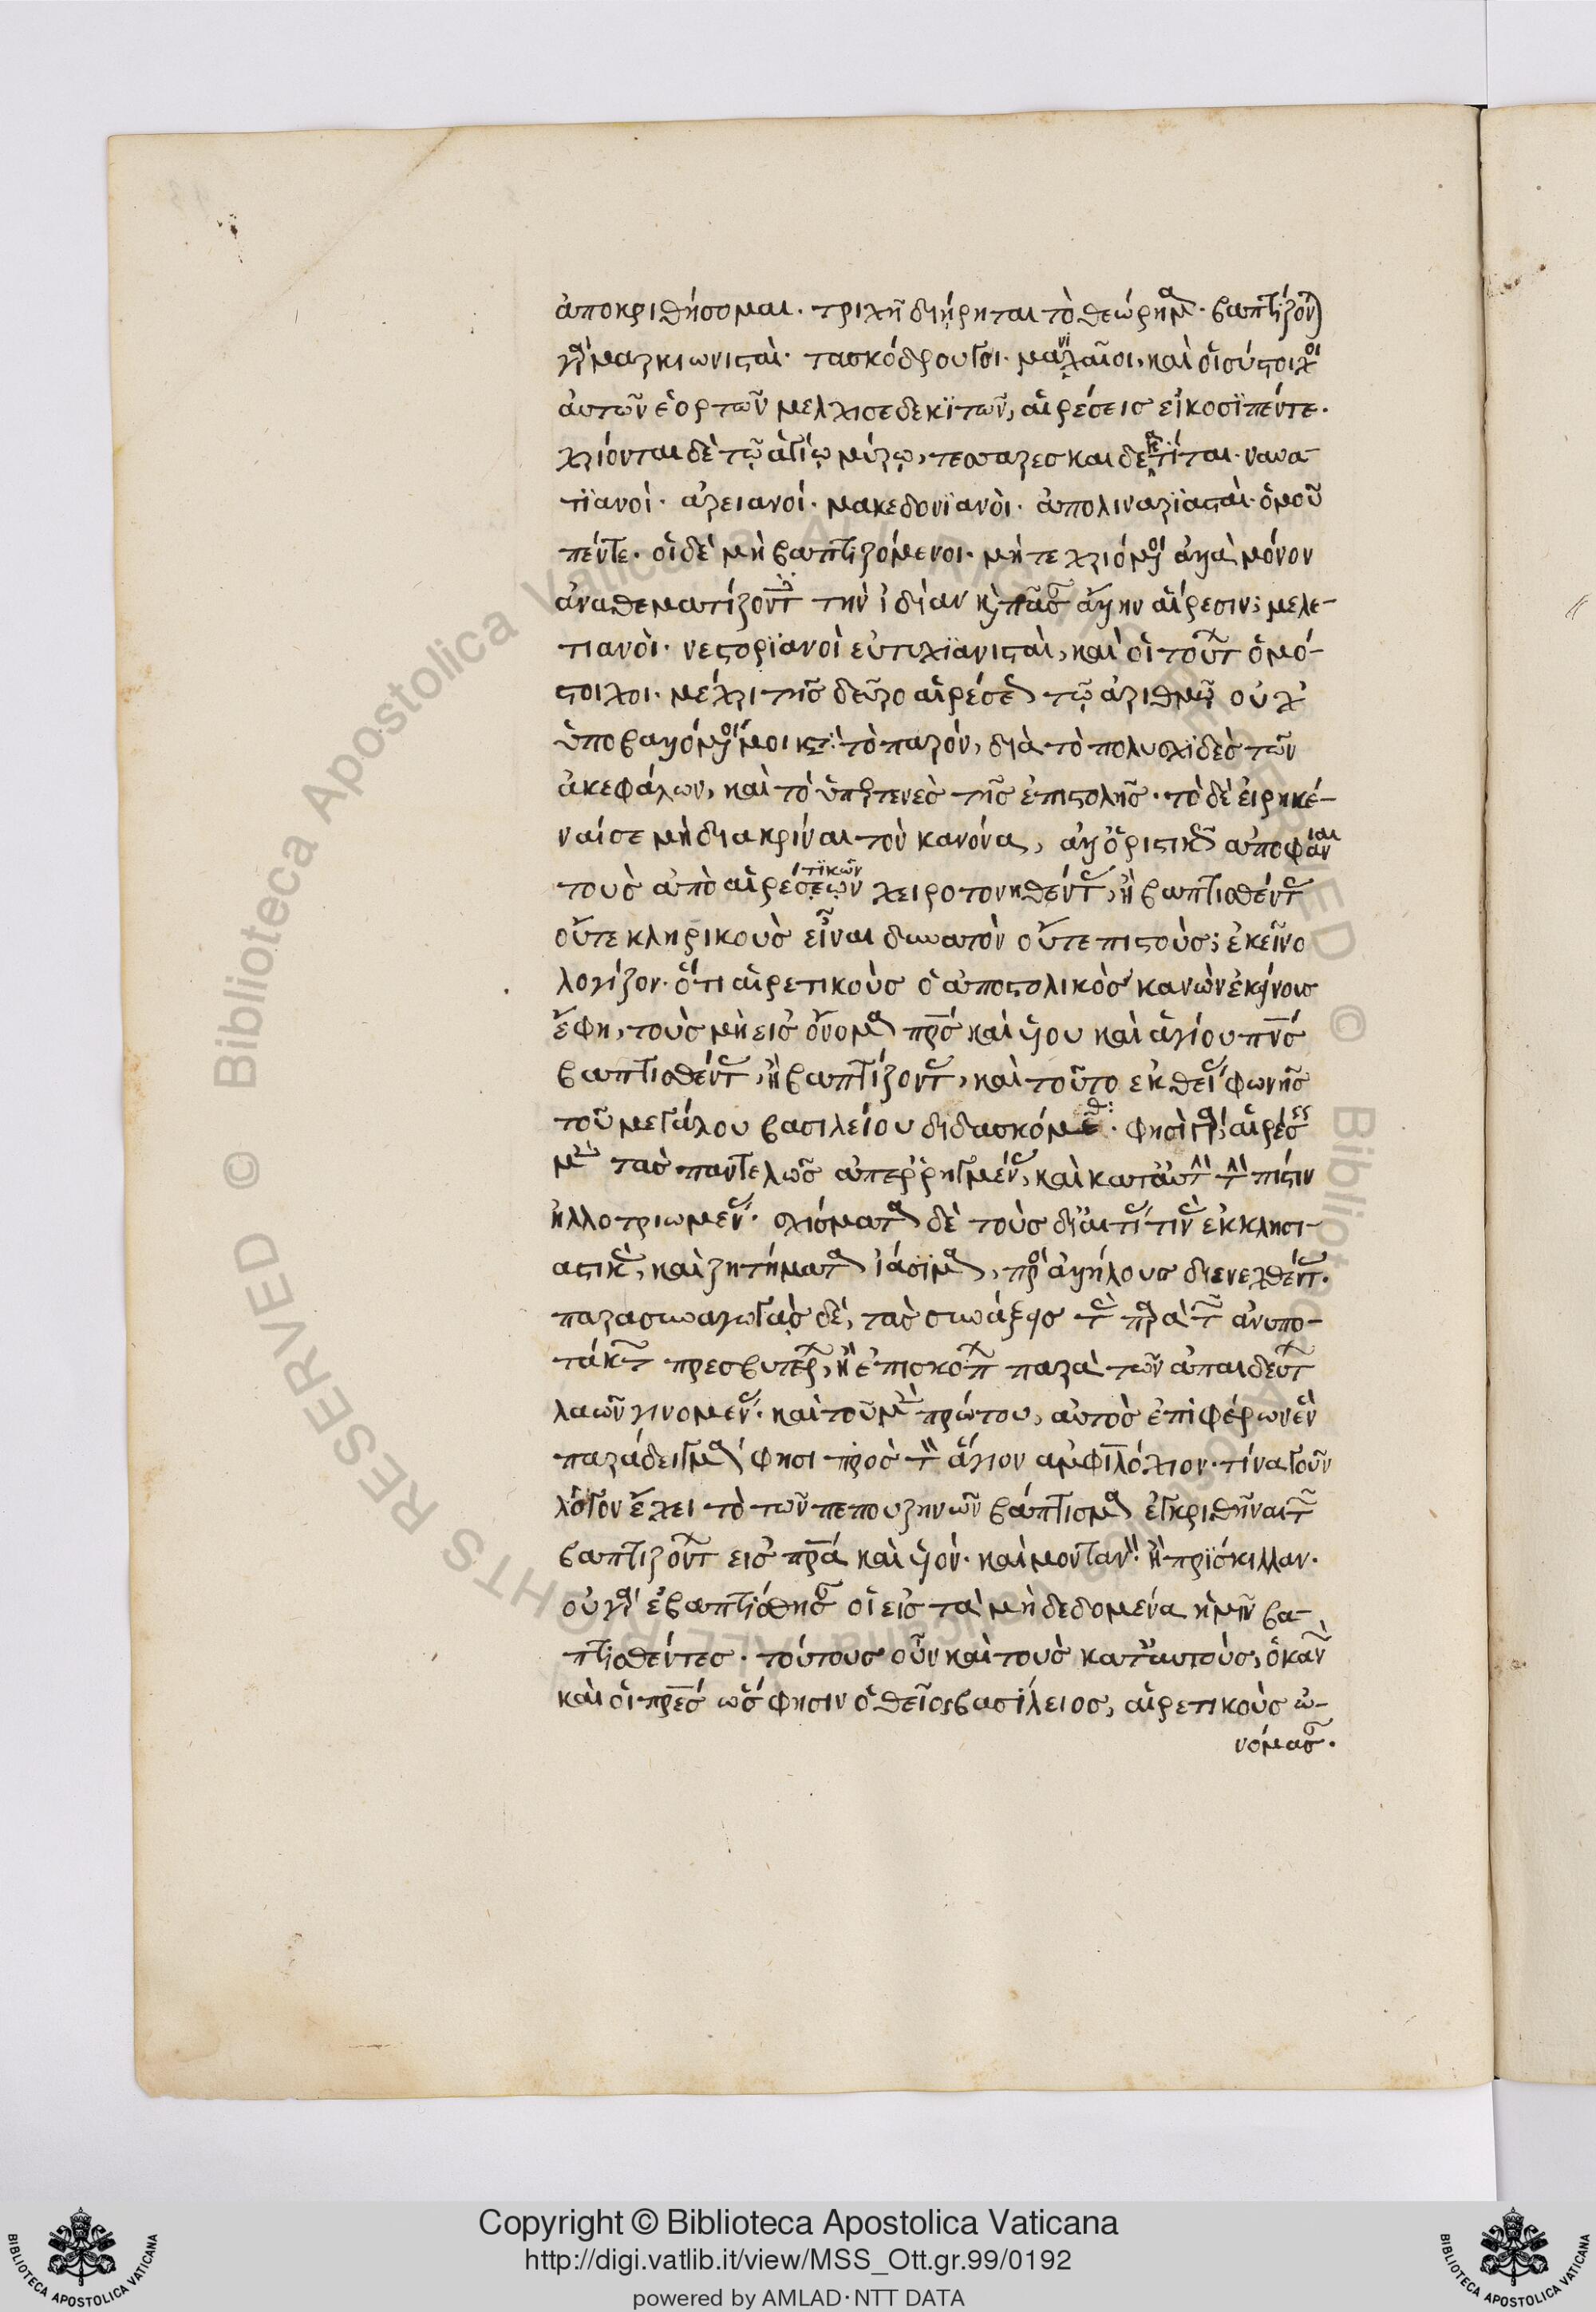 ἀποκριθήσομαι. τριχῆ διήρηται τὸ θεώρημα. βαπτίζονται
γὰρ μαρκιωνισταὶ. τασκόδρουγοι. μανιχαῖοι, καὶ οἱ σύστοιχοι
αὐτῶν ἑορτῶν μελχισεδεκϊτῶν, αἱρέσεις εἰκοσϊπέντε.
χρίονται δὲ τῷ ἁγίῳ μύρῳ, τεσσαρεσκαιδεκατίται. ναυα-
τϊανοί. ἀρειανοί. μακεδονϊανὸι. ἀπολιναρϊασταὶ. ὁμοῦ
πέντε. οἱ δὲ μὴ βαπτιζόμενοι. μήτε χριόμενοι ἀλλὰ μόνον
ἀναθεματίζοντες τὴν ἰδίαν καὶ πᾶσαν ἄλλην αἵρεσιν; μελε-
τιανὸι. νεστορϊανοὶ εὐτυχϊανισταὶ, καὶ οἱ τούτων ὁμό-
στοιχοι. μέχρι τῆς δεῦρο αἱρέσεως τῷ ἀριθμῷ οὐχ
ὑποβαλλόμενοί μοι κατὰ τὸ παρόν, διὰ τὸ πολυσχϊδὲς τῶν
ἀκεφάλων, καὶ τὸ ὑπότενες τῆς ἐπιστολῆς. τὸ δὲ εἰρηκέ-
ναί σε μὴ διακρίναι τὸν κανόνα, ἀλλ' ὁριστικῶς ἀποφᾶναι
τοὺς ἀπὸ αἱρέσεων τϊκῶν χειροτονηθέντας, ἢ βαπτισθέντας
οὔτε κληρικοὺς εἶναι δυνατὸν οὔτε πιστούς; ἐκεῖνο
λογίζου. ὅτι αἱρετικοὺς ὁ ἀποστολικὸς κανὼν ἐκείνους
ἔφη, τοὺς μὴ εἰς ὄνομα πρς καὶ υἱου καὶ ἁγίου πνς
βαπτισθέντας, ἢ βαπτίζοντας, καὶ τοῦτο ἐκ θείας φωνῆς
τοῦ μεγάλου βασιλείου διδασκόμεθα. φησὶ γὰρ, αἱρέσεις
μὲν τὰς παντελῶς ἀπερρηγμένας, καὶ κατ' αὐτὴν τὴν πίστιν
ἠλλοτριωμένας. σχίσματα δὲ τοὺς δι' αἰτίας τινὰς ἐκκλησι-
αστικὰς, καὶ ζητήματα ἰάσϊμα, πρὸς ἀλλήλους διενεχθέντας.
παρασυναγωγὰς δὲ, τὰς συνάξεις τὰς παρὰ τῶν ἀνυπο-
τάκτων πρεσβυτέρων, ἢ ἐπισκόπων παρὰ τῶν ἀπαιδεύτων
λαῶν γινομένας. καὶ τοῦ μὲν πρώτου, αὐτὸς ἐπιφέρων ἓν
παράδειγμα φησι πρὸς τὸν ἅγιον ἀμφιλόχιον. τίνα γοῦν
λόγον ἔχει τὸ τῶν πεπουζηνῶν βάπτισμα ἐγκριθῆναι τῶν
βαπτιζόντων εἰς πρα καὶ υἱὸν. καὶ μοντανὸν ἢ πρϊσκιλλαν.
οὐ γὰρ ἐβαπτίσθησαν οἱ εἰς τὰ μὴ δεδομένα ἡμῖν βα-
πτισθέντες. τούτους οὖν καὶ τοὺς κατ' αὐτοὺς, ὁ κανὼν
καὶ οἱ πρες ὥς φησιν ὁ θεῖος βασίλειος, αἱρετικοὺς ὠ-
νόμασαν.
Copyright © Biblioteca Apostolica Vaticana
http://digi.vatlib.it/view/MSS_Ott.gr.99/0192
powered by AMLAD·NTT DATA